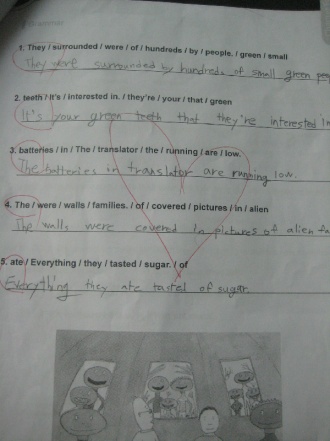 1. They / surrounded / were / of / hundreds / by / people. / green / small
They were surrounded by hundreds of small green
2. teeth / It's / interested in. / they're / your / that / green
It's your green teeth that they're interested in
3. batteries / in / The / translator / the / running / are / low.
The batteries in translator are running low.
4. The / were / walls / families. / of / covered / pictures / in / alien
The walls were covered in pictures of alien
5. ate / Everything / they / tasted / sugar. / of
Everything they ate tasted of sugar.